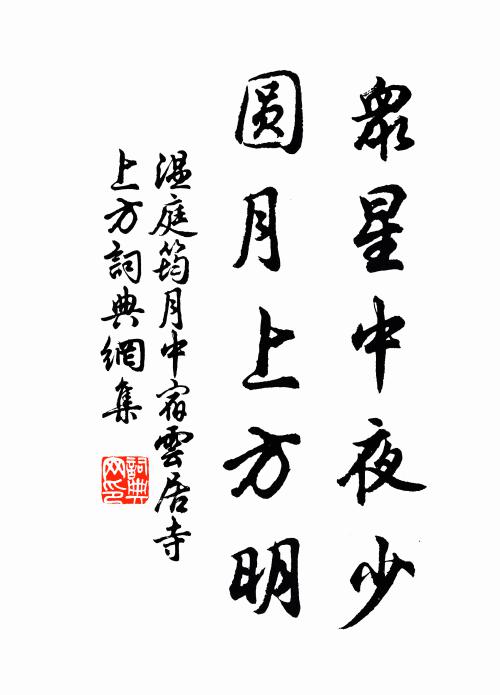 衆星中夜少
圆月上方明
温庭筠月中宿雲居寺
上方詞典網集
詞典
网印